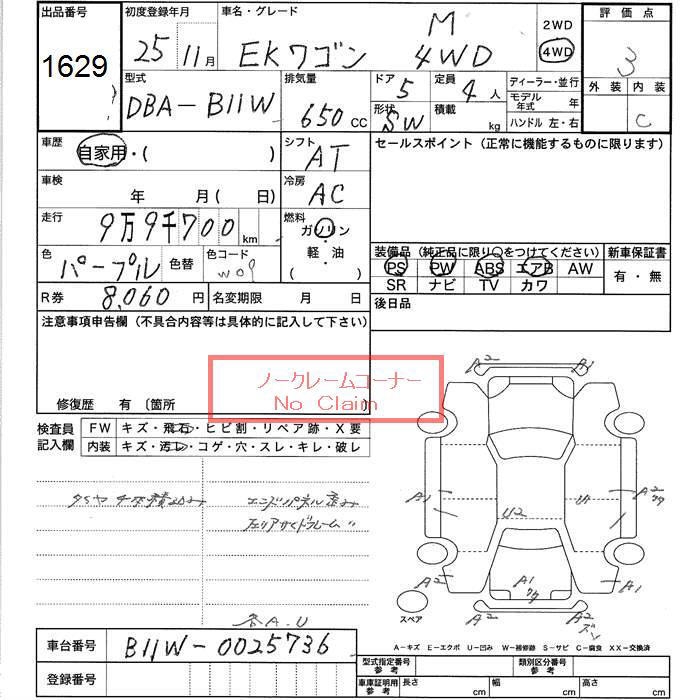 出品番号 初度登録年月 車名・グレード M 2WD 評価点
1629 25 11月 EKワゴン 4WD 4WD 3
型式 排気量 ドア 5 定員 4 人 ディーラー・並行 外装 内装
DBA-B11W 650 CC 形状 SW 積載 kg モデル年式 年 C
ハンドル 左・右
車歴 シフト セールスポイント (正常に機能するものに限ります)
自家用・( ) AT
車検 冷房
年 月( 日) AC
走行 燃料
9万9千700 km ガソリン
軽・油
( )
色 パープル 色替 色コード W09
装備品 (純正品に限り○をつけてください) 新車保証書
PS PW ABS エアB AW 有・無
SR ナビ TV カワ
R券 8,060 円 名変期限 月 日 後日品
注意事項申告欄 (不具合内容等は具体的に記入して下さい)
ノークレームコーナー
No Claim
修復歴 有 〔箇所
検査員記入欄 FW キズ・飛石・ヒビ割・リペア跡・X要
内装 キズ・汚レ・コゲ・穴・スレ・キレ・破レ
A2 A1
A1 A2
U2 U1
A2 A1 A1
A2 A2
スペア
A.U
車台番号 B11W-0025736
登録番号
A-キズ E-エクボ U-凹み W-補修跡 S-サビ C-腐食 XX-交換済
型式指定番号参考 類別区分番号参考
車庫証明用参考 長さ cm 幅 cm 高さ cm